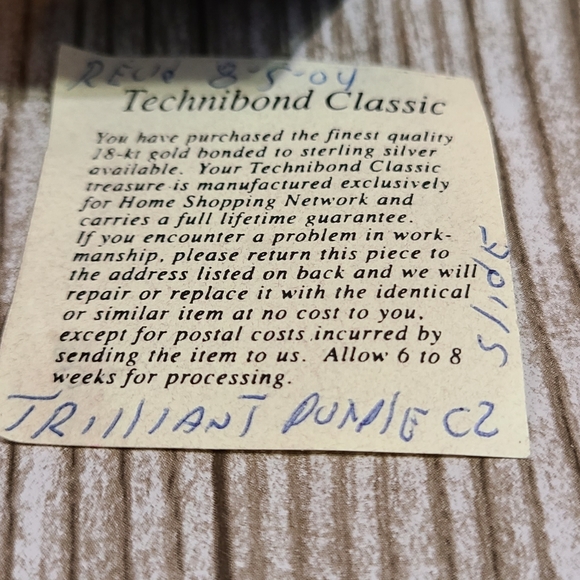 REC'd 8-5-04
Technibond Classic
You have purchased the finest quality
18-kt gold bonded to sterling silver
available. Your Technibond Classic
treasure is manufactured exclusively
for Home Shopping Network and
carries a full lifetime guarantee.
If you encounter a problem in work-
manship, please return this piece to
the address listed on back and we will
repair or replace it with the identical
or similar item at no cost to you,
except for postal costs incurred by
sending the item to us. Allow 6 to 8
weeks for processing.
SlidE
TRIllIANT PURPlE CZ